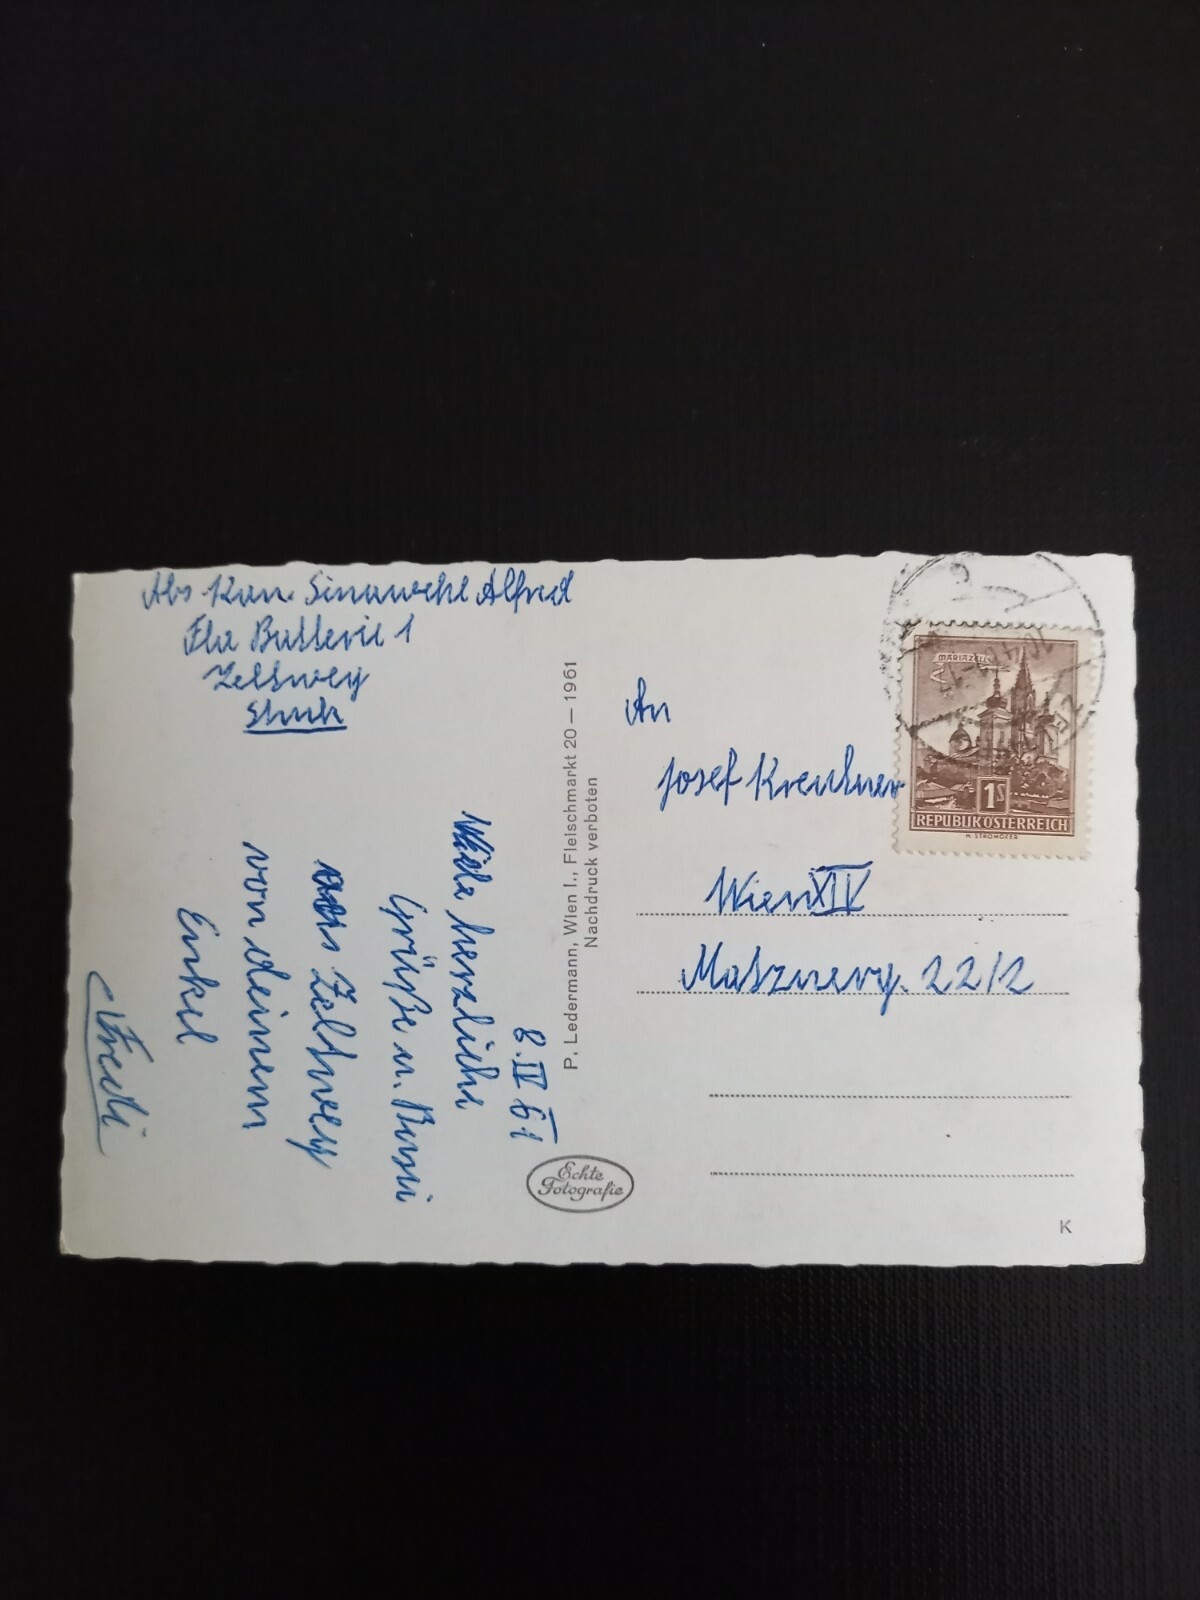 Abs Kan. Sinawehl Alfred
Fla Batterie 1
Zeltweg
Stmk
8.IV 61
Viele herzliche
Grüße u. Bussi
aus Zeltweg
von deinem
Enkel
Fredi
P. Ledermann, Wien I., Fleischmarkt 20 – 1961
Nachdruck verboten
Echte
Fotografie
An
Josef Kreutner
Wien XIV
Matznerg. 22/2
MARIAZELL
1S
REPUBLIK ÖSTERREICH
H. STROHOFER
K